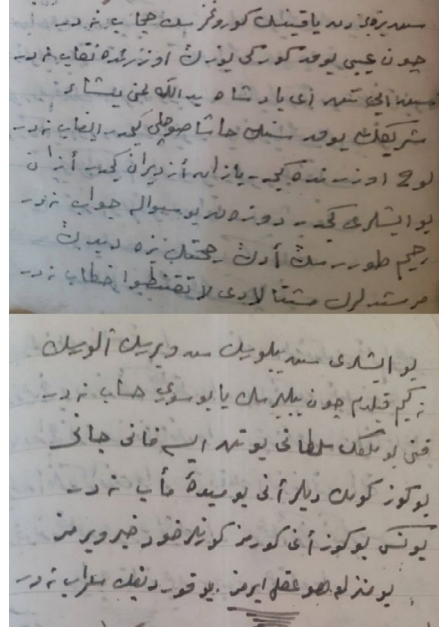 سندن یقین كورونمز سك حجاب نه در
چون عیبی یوقدر كوركلی یوزك اوزرنده نقاب نه در
سن ای پادشاه یهدی الله لمن یشاء
شریكك یوقدر سنك حاشا صوچلی كیمدر عقاب نه در
لوح اوزرنده كیمدر یازان آزدیران كیمدر آزان
بو ایشلری كیمدر دوزن بو سؤاله جواب نه در
رحیم طورر سنك آدك رحمتك بزه دیدك
مرشدلرك مشتالادی لا تقنطوا خطاب نه در
بو ایشلری سن بیلورسك سن ویررسك آلورسك
نه كیم قلدم چون بیلیرسك یا بو سوری حساب نه در
قنی بو ملكك سلطانی بو تن ایسه قانی جانی
بو كوز كورمك دیلر آنی بو میدهٔ مآب نه در
یونس بو كوز آنی كورمز كورنلر خود خبر ویرمز
بو منزله هو عقل ایرمز بو قوردیغك سراب نه در